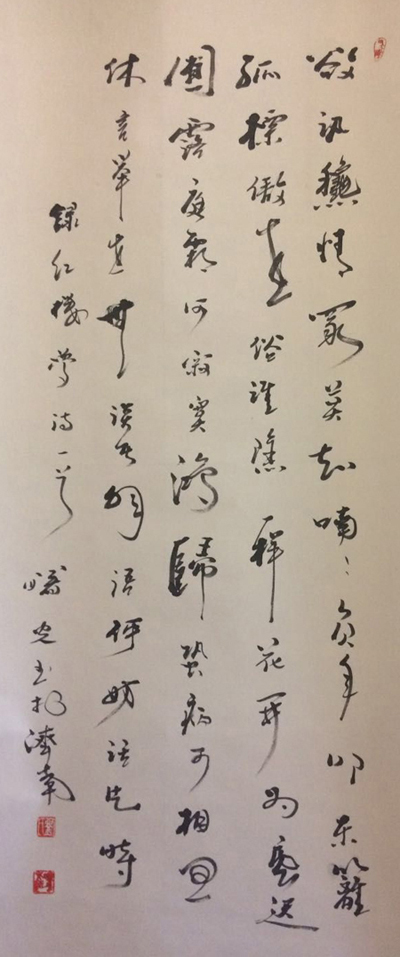 欲訊龝情眾莫知喃〻負手叩東籬
孤標傲世俗誰隱一樣花開為底遲
圃露庭霜何寂寞鴻歸蛩病可相思
休言舉世無談者解語何妨話片時
錄紅樓夢詩一首 光書於濟南